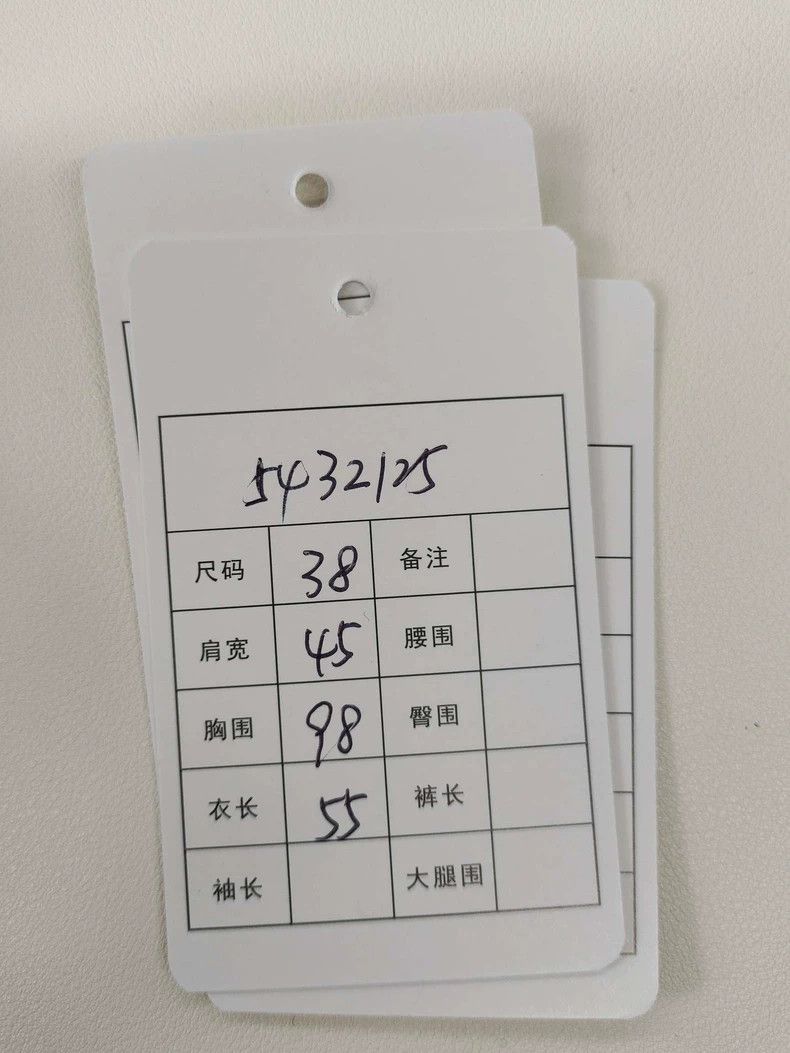 5432125
尺码 38 备注
肩宽 45 腰围
胸围 98 臀围
衣长 55 裤长
袖长 大腿围